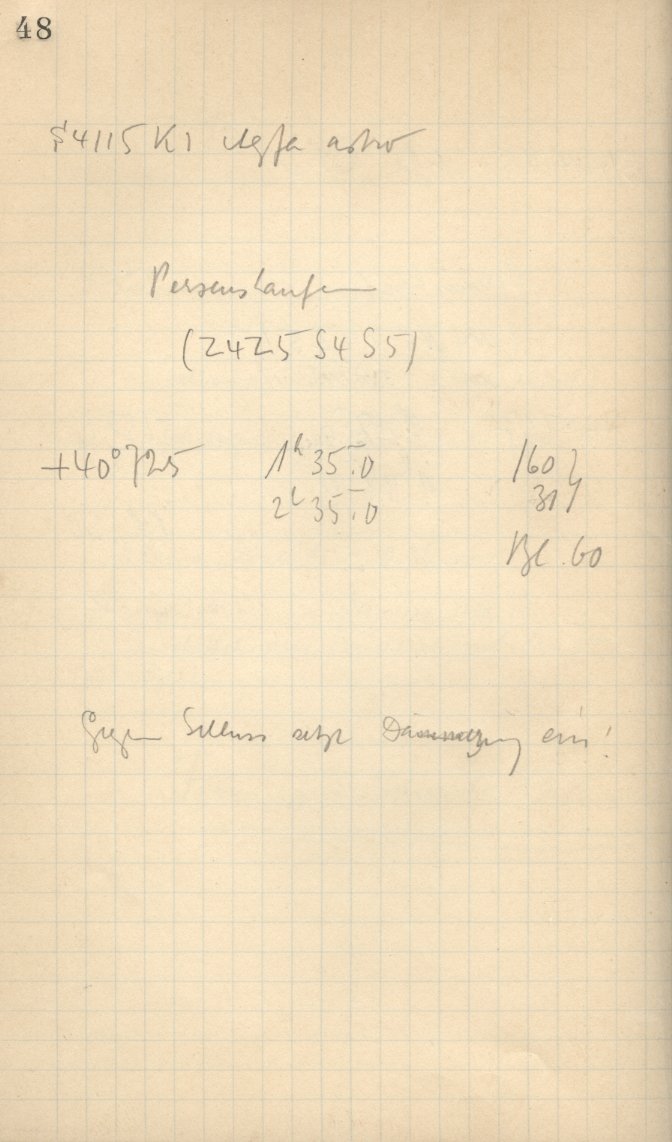 48
S4115 K1 Agfa astro
Perseushaufen
(Z4Z5 S4 S5)
+40°725 1ʰ 35ᵐ.0 160
2ʰ 35ᵐ.0 31
Bl. 60
Gegen Schluss setzt Dämmerung ein!